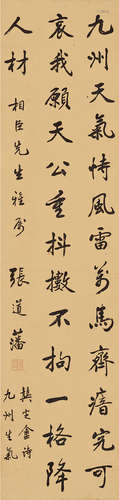 九州天氣恃風雷萬馬齊瘖究可
哀我願天公重抖擻不拘一格降
人材
相臣先生雅屬
張道藩
龔定盦詩
九州生氣